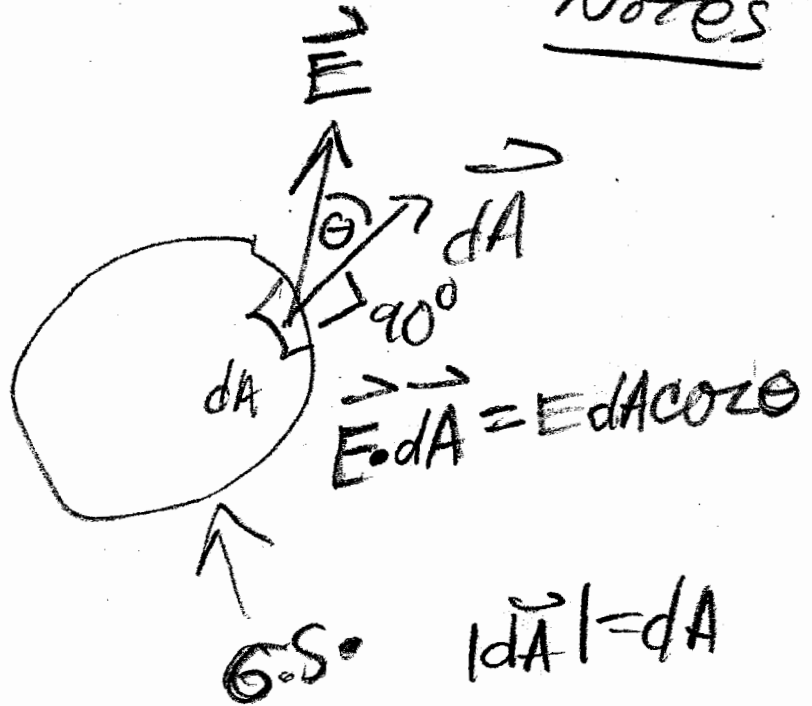 Notes
E⃗
θ
dA⃗
90⁰
dA
E⃗·dA⃗ = EdAcosθ
G.S.
|dA⃗|=dA